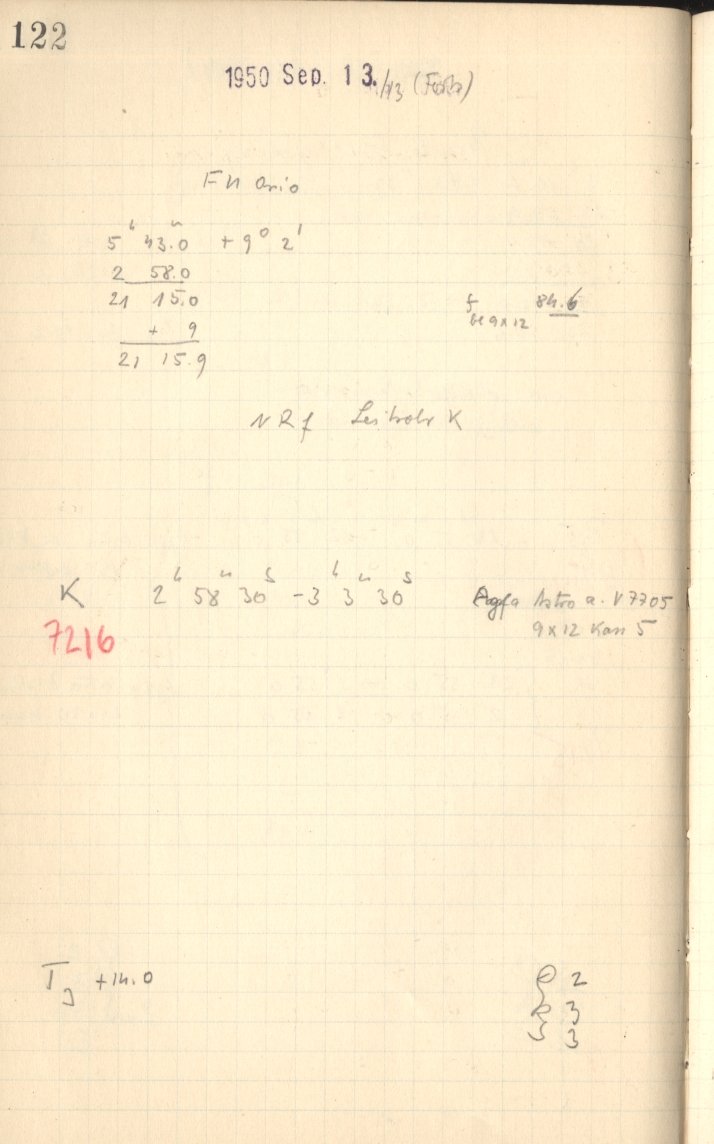 122
1950 Sep. 13./13 (Forts)
FU Orio
5ʰ 43.0ᵐ + 9° 2'
2 58.0
21 15.0
+ 9
21 15.9
f bei 9x12 84.6
NRf Leitrohr K
K 2ʰ 58ᵐ 30ˢ - 3ʰ 3ᵐ 30ˢ Agfa Astro a. V7705
7216 9x12 Kass 5
T₃ +14.0
2
R 3
3